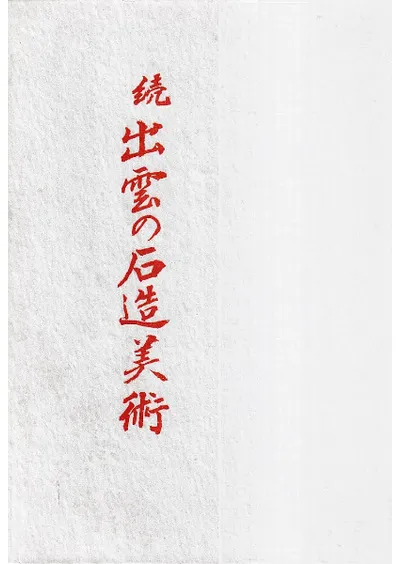 続 出雲の石造美術